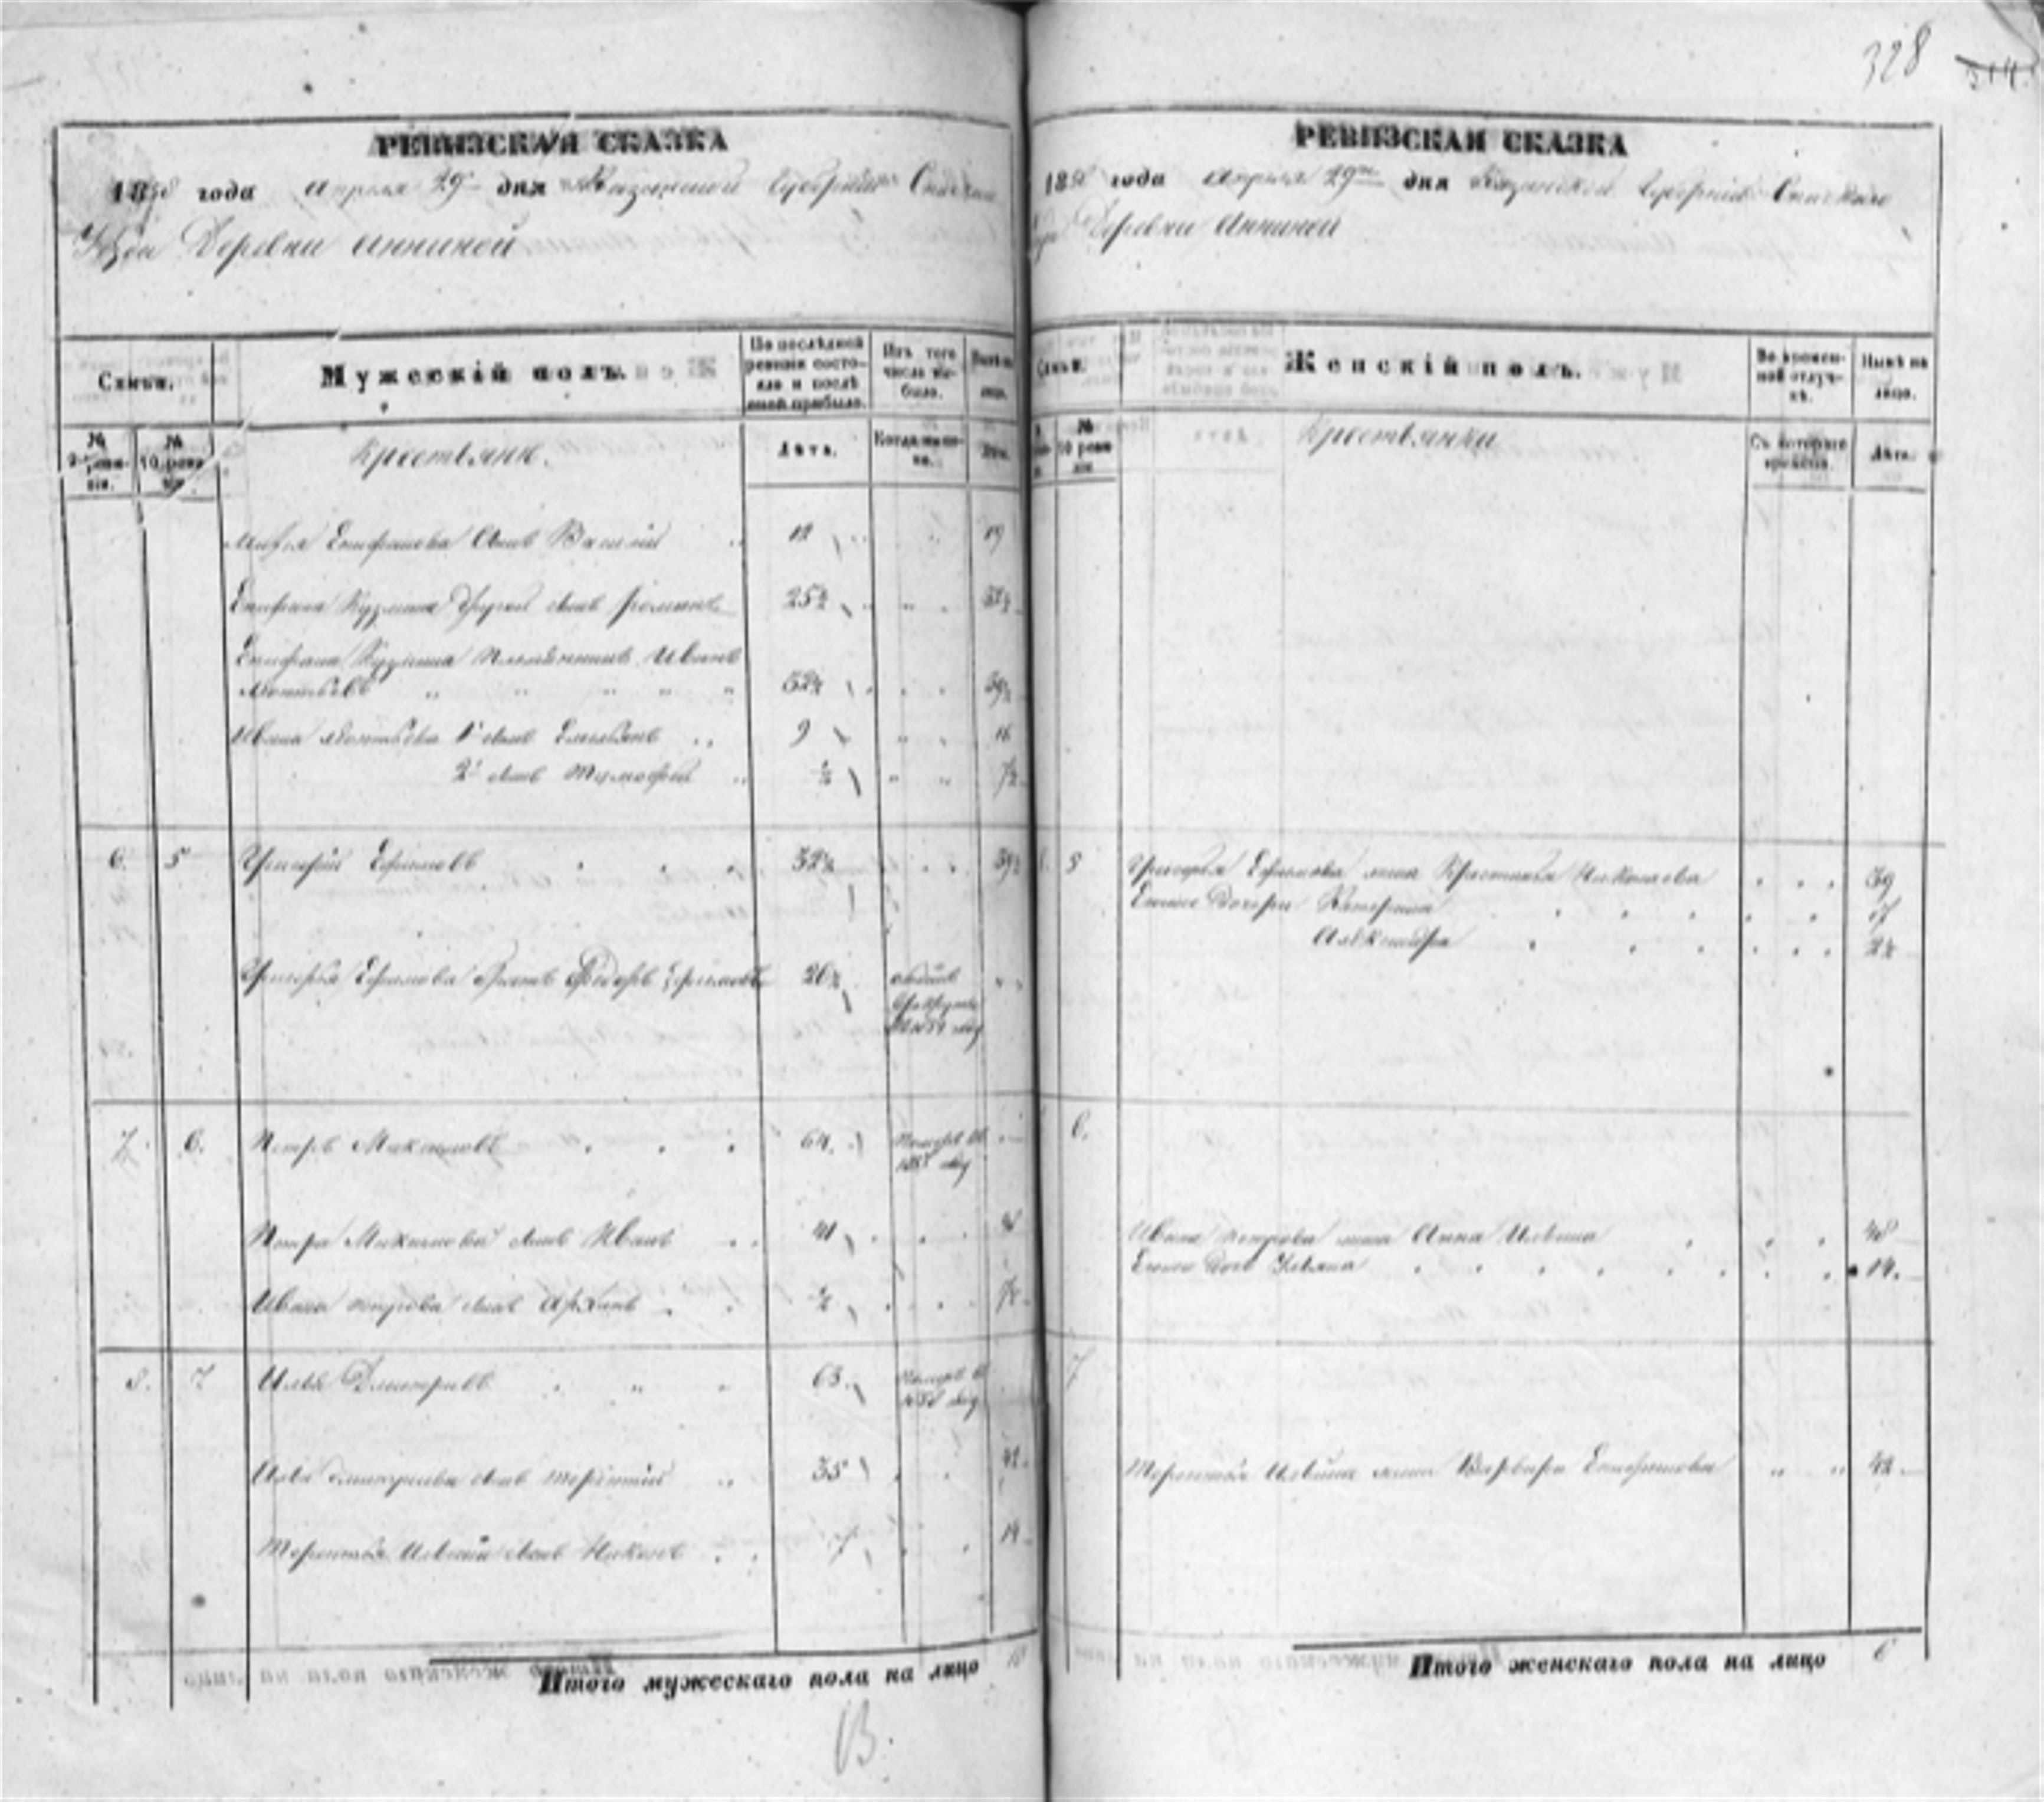 328
РЕВИЗСКАЯ СКАЗКА
1858 года апреля 29 дня Казанской Губернии Спаскаго
Уезда Деревни Анниной
Семьи.
Мужескій полъ.
По послѣдней ревизіи состояло и послѣ оной прибыло.
Изъ того числа выбыло.
Нынѣ на лицо.
№ 9 ревизіи.
№ 10 ревизіи
Крестьяне.
Лѣта.
Когда именно.
Лѣта.
Епифанова Сынъ Василій 12 19
Епифана Кузмина Другой Сынъ Романъ 25½ 32½
Епифана Кузмина племянникъ Иванъ
Леонтьевъ 32½ 39½
Ивана Леонтьева 1й Сынъ Емельянъ 9 16
2й Сынъ Тимофей ½ 7½
6. 5 Григорій Ефимовъ 32½ 39½
Григорья Ефимова братъ Федоръ Ефимовъ 26½ отданъ
в рекруты
в 1854 году
7. 6. Петръ Максимовъ 64. Померъ въ
185 году
Петра Максимова Сынъ Иванъ 41 48
Ивана Петрова Сынъ Архипъ ½ 7½
8. 7 Илья Дмитріевъ 63. Померъ въ
185 году
Илья Дмитріева Сынъ Терентій 35 42
Терентья Ильина Сынъ 7 14
Итого мужескаго пола на лицо
13.
РЕВИЗСКАЯ СКАЗКА
1858 года апреля 29го дня Казанской Губерніи Спаскаго
Деревни Анниной
Семьи.
Женскій полъ.
Во временной отлучкѣ.
Нынѣ на лицо.
№ 10 ревизіи
Крестьянки
Съ котораго времени.
Лѣта.
5 Григорья Ефимова жена Кристинья Николаева 39
Егоже Дочери Катерина 17
Александра 2½
6.
Ивана Петрова жена Анна Ильина 48
Егоже Дочь Ульяна 14.
7
Терентья Ильина жена Варвара Епифанова 42
Итого женскаго пола на лицо 6